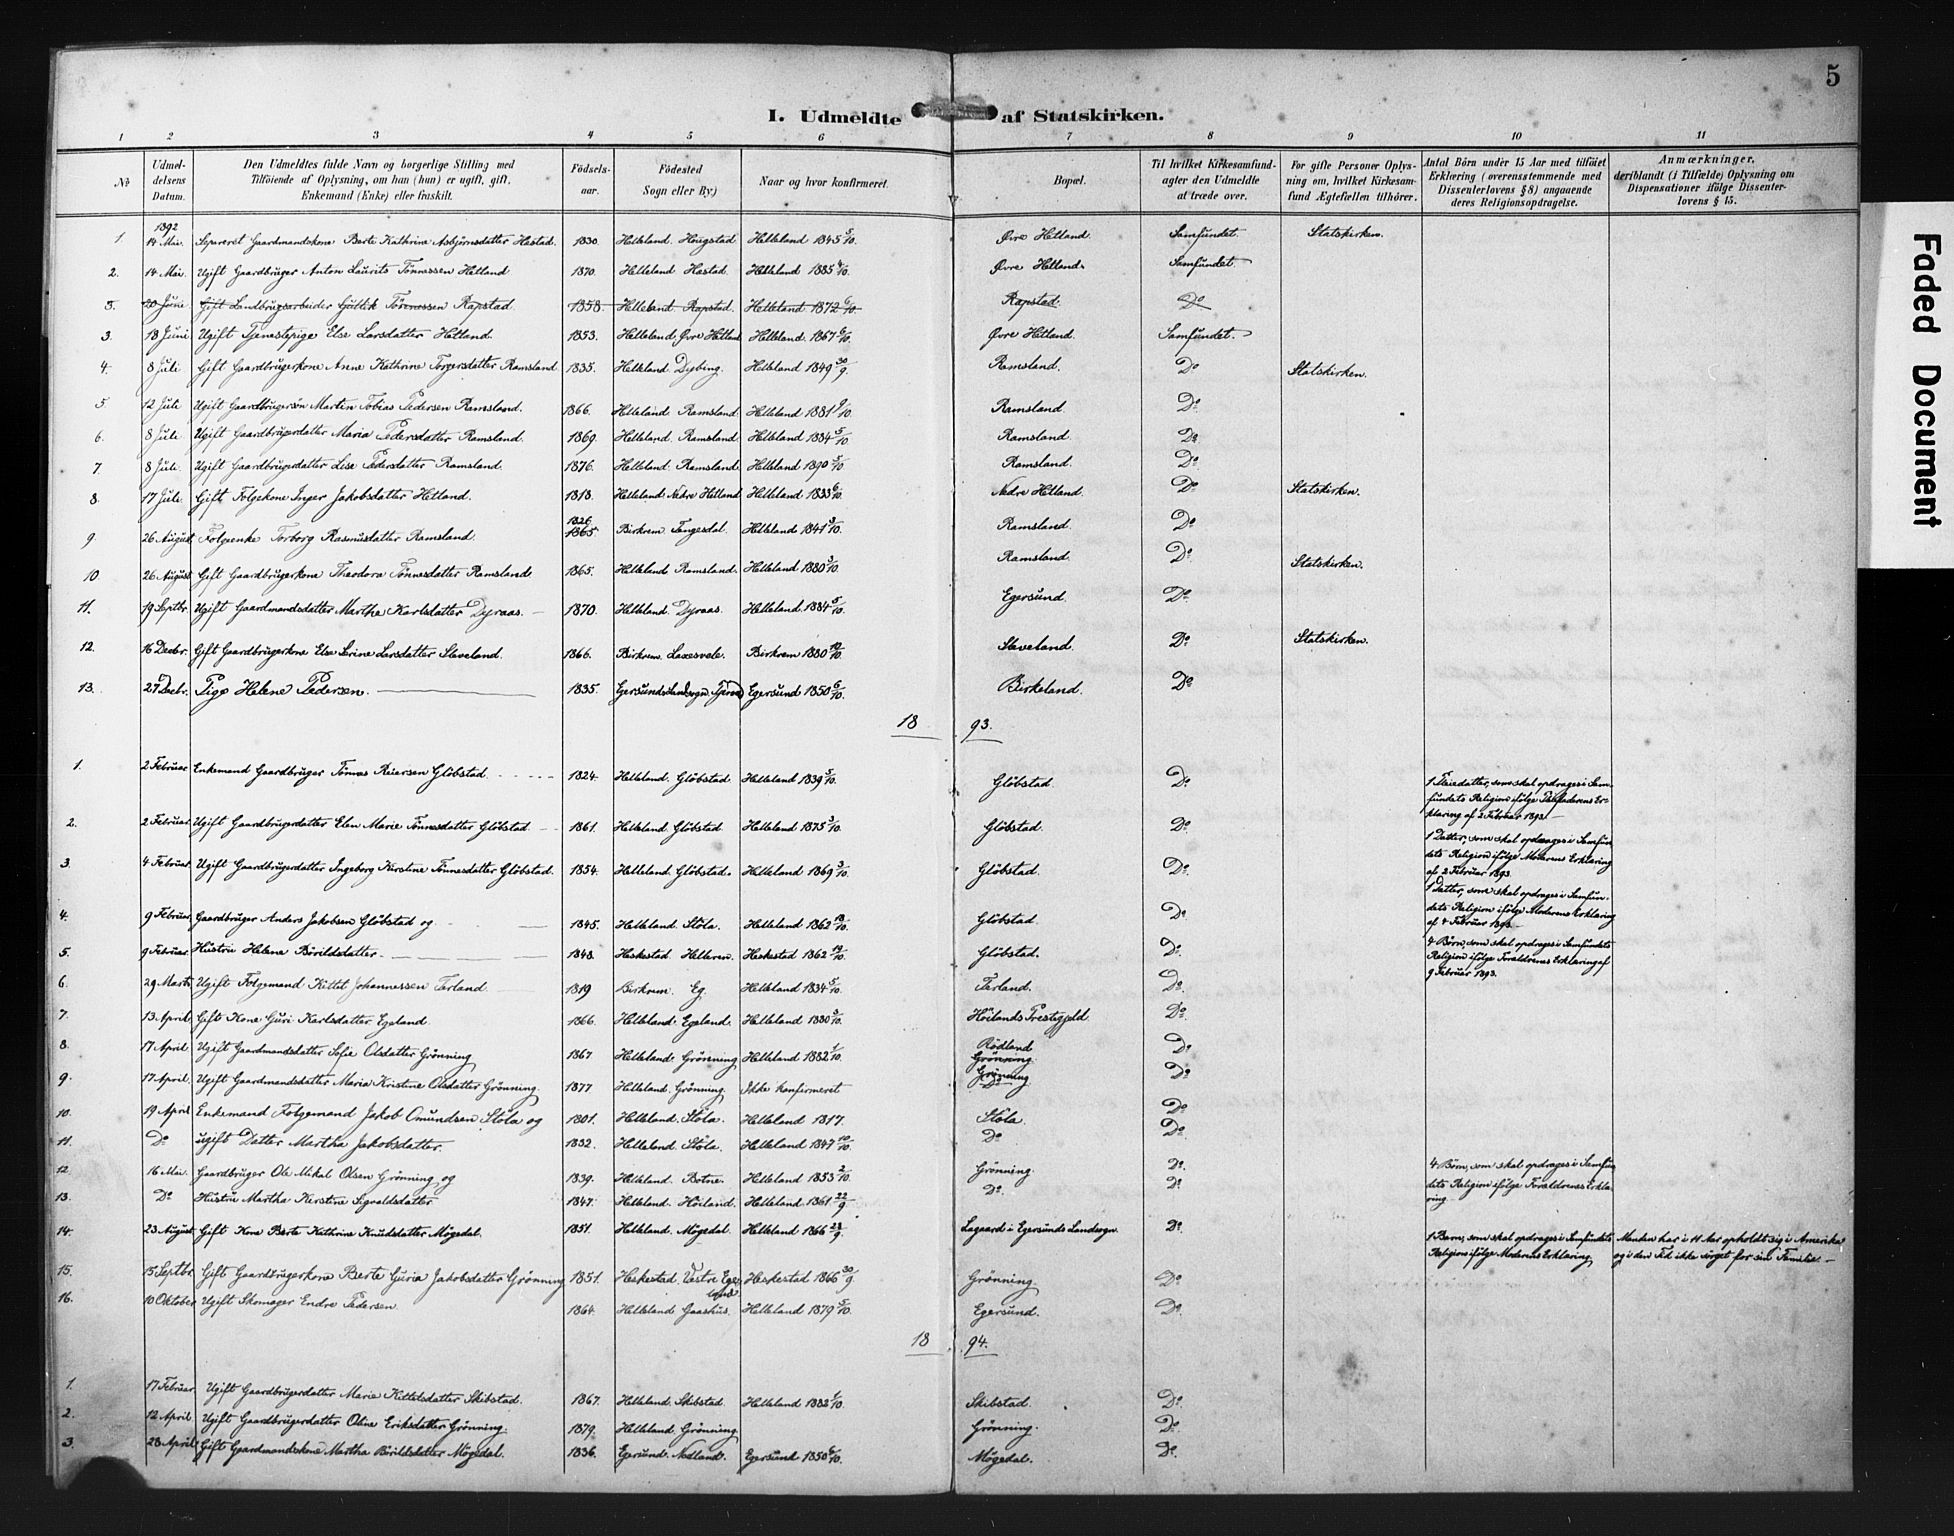 5
I. Udmeldte af Statskirken.
1 2 3 4 5 6 7 8 9 10 11
№ | Udmeldelsens Datum. | Den Udmeldtes fulde Navn og borgerlige Stilling med Tilföiende af Oplysning, om han (hun) er ugift, gift, Enkemand (Enke) eller fraskilt. | Födselsaar. | Födested Sogn eller By) | Naar og hvor konfirmeret. | Bopæl. | Til hvilket Kirkesamfund agter den Udmeldte at træde over. | For gifte Personer Oplysning om, hvilket Kirkesamfund Ægtefællen tilhörer. | Antal Börn under 15 Aar med tilföiet Erklæring (overensstemmende med Dissenterlovens § 8) angaaende deres Religionsopdragelse. | Anmærkninger, deriblandt (i Tilfælde) Oplysning om Dispensationer ifölge Dissenterlovens § 15.
1892
1. 14 Mai. Separeret Gaardmandskone Berte Kathrine Asbjörnsdatter Hestad. 1830. Helleland Hougstad Helleland 1845 5/10. Øvre Hetland Samfundet. Statskirken.
2. 14 Mai. Ugift Gaardbruger Anton Laurits Tönnessen Hetland 1870. Helleland Hestad. Helleland 1885 4/10. Øvre Hetland. Samfundet.
3. 20 Juni Gift Landbrugsarbeider Gjüllik Tönnessen Rapstad. 1858. Helleland Rapstad. Helleland 1872 6/10. Rapstad. Do
3. 18 Juni Ugift Tjenestepige Else Larsdatter Hetland. 1853. Helleland Øvre Hetland Helleland 1867 6/10. Øvre Hetland. Samfundet.
4. 8 Juli Gift Gaardbrugerkone Anne Kathrine Torgersdatter Ramsland 1835. Helleland Dybing. Helleland 1849 30/9. Ramsland. Do Statskirken.
5. 12 Juli Ugift Gaardbrugersön Martin Tobias Pedersen Ramsland. 1866. Helleland Ramsland Helleland 1881 9/10. Ramsland Do
6. 8 Juli Ugift Gaardbrugerdatter Maria Pedersdatter Ramsland. 1869. Helleland. Ramsland Helleland 1884 5/10. Ramsland Do
7. 8 Juli. Ugift Gaardbrugerdatter Lise Pedersdatter Ramsland 1876. Helleland. Ramsland Helleland 1890 5/10 Ramsland. Do
8. 17 Juli Gift Folgekone Inger Jakobsdatter Hetland. 1818. Helleland Nedre Hetland Helleland 1833 6/10. Nedre Hetland. Do Statskirken.
9. 26 August Folgeenke Torborg Rasmusdatter Ramsland. 1826 1865 Birkrem Tengesdal. Helleland 1841 3/10. Ramsland. Do
10. 26 August Gift Gaardbrugerkone Theodora Tönnesdatter Ramsland. 1865. Helleland Ramsland. Helleland 1880 3/10. Ramsland. Do Statskirken.
11. 19 Septbr. Ugift Gaardmandsdatter Marthe Karlsdatter Dyraas. 1870. Helleland. Dyraas. Helleland. 1884 5/10. Egersund. Do
12. 16 Decbr. Gift Gaardbrugerkone Else Serine Larsdatter Slaveland. 1866. Birkrem. Laxesvele. Birkrem 1880 10/10. Slaveland. Do Statskirken.
13. 27 Decbr. Pige Helene Pedersen. 1835. Egersunds Landsogn. Tjern Egersund 1850 6/10. Birkeland. Do
18 93.
1. 2 Februar Enkemand Gaardbruger Tönnes Reiersen Glöbstad. 1824. Helleland. Glöbstad. Helleland 1839 5/10. Glöbstad. Do 1 Pleiedatter, som skal opdrages i Samfundets Religion ifölge Pleiefaderens Erklæring af 2 Februar 1893.
2. 2 Februar. Ugift Gaardbrugerdatter Elen Marie Tönnesdatter Glöbstad 1861. Helleland. Glöbstad. Helleland 1875 3/10. Glöbstad. Do 1 Datter, som skal opdrages i Samfundets Religion ifölge Moderens Erklæring af 2 Februar 1893.
3. 4 Februar. Ugift Gaardbrugerdatter Ingeborg Kirstine Tönnesdatter Glöbstad. 1854. Helleland. Glöbstad. Helleland 1869 3/10. Glöbstad. Do 1 Datter, som skal opdrages i Samfundets Religion ifölge Moderens Erklæring af 4 Februar 1893.
4. 9 Februar. Gaardbruger Anders Jakobsen Glöbstad og 1845. Helleland. Stöla. Helleland 1862 12/10. Glöbstad Do
5. 9 Februar. Hustru Helene Börildsdatter. 1848. Heskestad. Helleren. Heskestad 1862 19/10. Glöbstad. Do 4 Börn, som skal opdrages i Samfundets Religion ifölge Forældrenes Erklæring af 9 Februar 1893.
6. 29 Marts Ugift Folgemand Kittil Johannessen Terland 1819 Birkrem. Eg. Helleland 1834 5/10. Terland. Do
7. 13 April. Gift Kone Guri Karlsdatter Egeland. 1866. Helleland. Egeland. Helleland 1880 3/10. Höilands Prestegjeld. Do
8. 17 April Ugift Gaardmandsdatter Sofie Olsdatter Grönning 1867 Helleland. Grönning Helleland 1882 1/10. Rödland Grönning. Do
9. 17 April. Ugift Gaardmandsdatter Maria Kristine Olsdatter Grönning 1877 Helleland. Grönning. Ikke konfirmeret Grönning Do Do
10. 19 April Enkemand Folgemand Jakob Omundsen Stöla og 1801. Helleland. Stöla. Helleland 1817. Stöla Do
11. Do ugift Datter Martha Jakobsdatter. 1832. Helleland. Stöla. Helleland 1847 10/10. Do Do
12. 16 Mai. Gaardbruger Ole Mikal Olsen Grönning og 1839. Helleland. Botne. Helleland 1853 2/10. Grönning. Do 4 Börn, som skal opdrages i Samfundets Religion ifölge Forældrenes Erklæring.
13. Do Hustru Martha Kirstine Sigvaldsdatter 1847. Helleland. Höiland. Helleland 1861 22/9 Do. Do
14. 23 August. Gift Kone Berte Kathrine Knudsdatter Mögedal. 1851. Helleland. Mögedal. Helleland 1866 23/9. Lagaard i Egersunds Landsogn. Do 1 Barn, som skal opdrages i Samfundets Religion ifölge Moderens Erklæring. Manden har i 11 Aar opholdt sig i Amerika og i den Tid ikke sörget for sin Familie.
15. 15 Septbr. Gift Gaardbrugerkone Berte Guria Jakobsdatter Grönning 1851. Heskestad Vestre Egeland Heskestad 1866 30/9 Grönning. Do
16. 10 Oktober Ugift Skomager Endre Pedersen. 1864. Helleland Gaashus. Helleland 1879 5/10. Egersund. Do
18 94.
1. 17 Februar Ugift Gaardbrugerdatter Marie Kittelsdatter Skibstad. 1867. Helleland. Skibstad. Helleland 1882 1/10. Skibstad. Do
2. 12 April. Ugift Gaardbrugerdatter Oline Eriksdatter Grönning. 1879. Helleland. Grönning. Grönning. Do
3. 28 April Gift Gaardmandskone Martha Börildsdatter Mögedal. 1836. Egersund. Nedland. Egersund 1850 6/10. Mögedal. Do
Faded Document